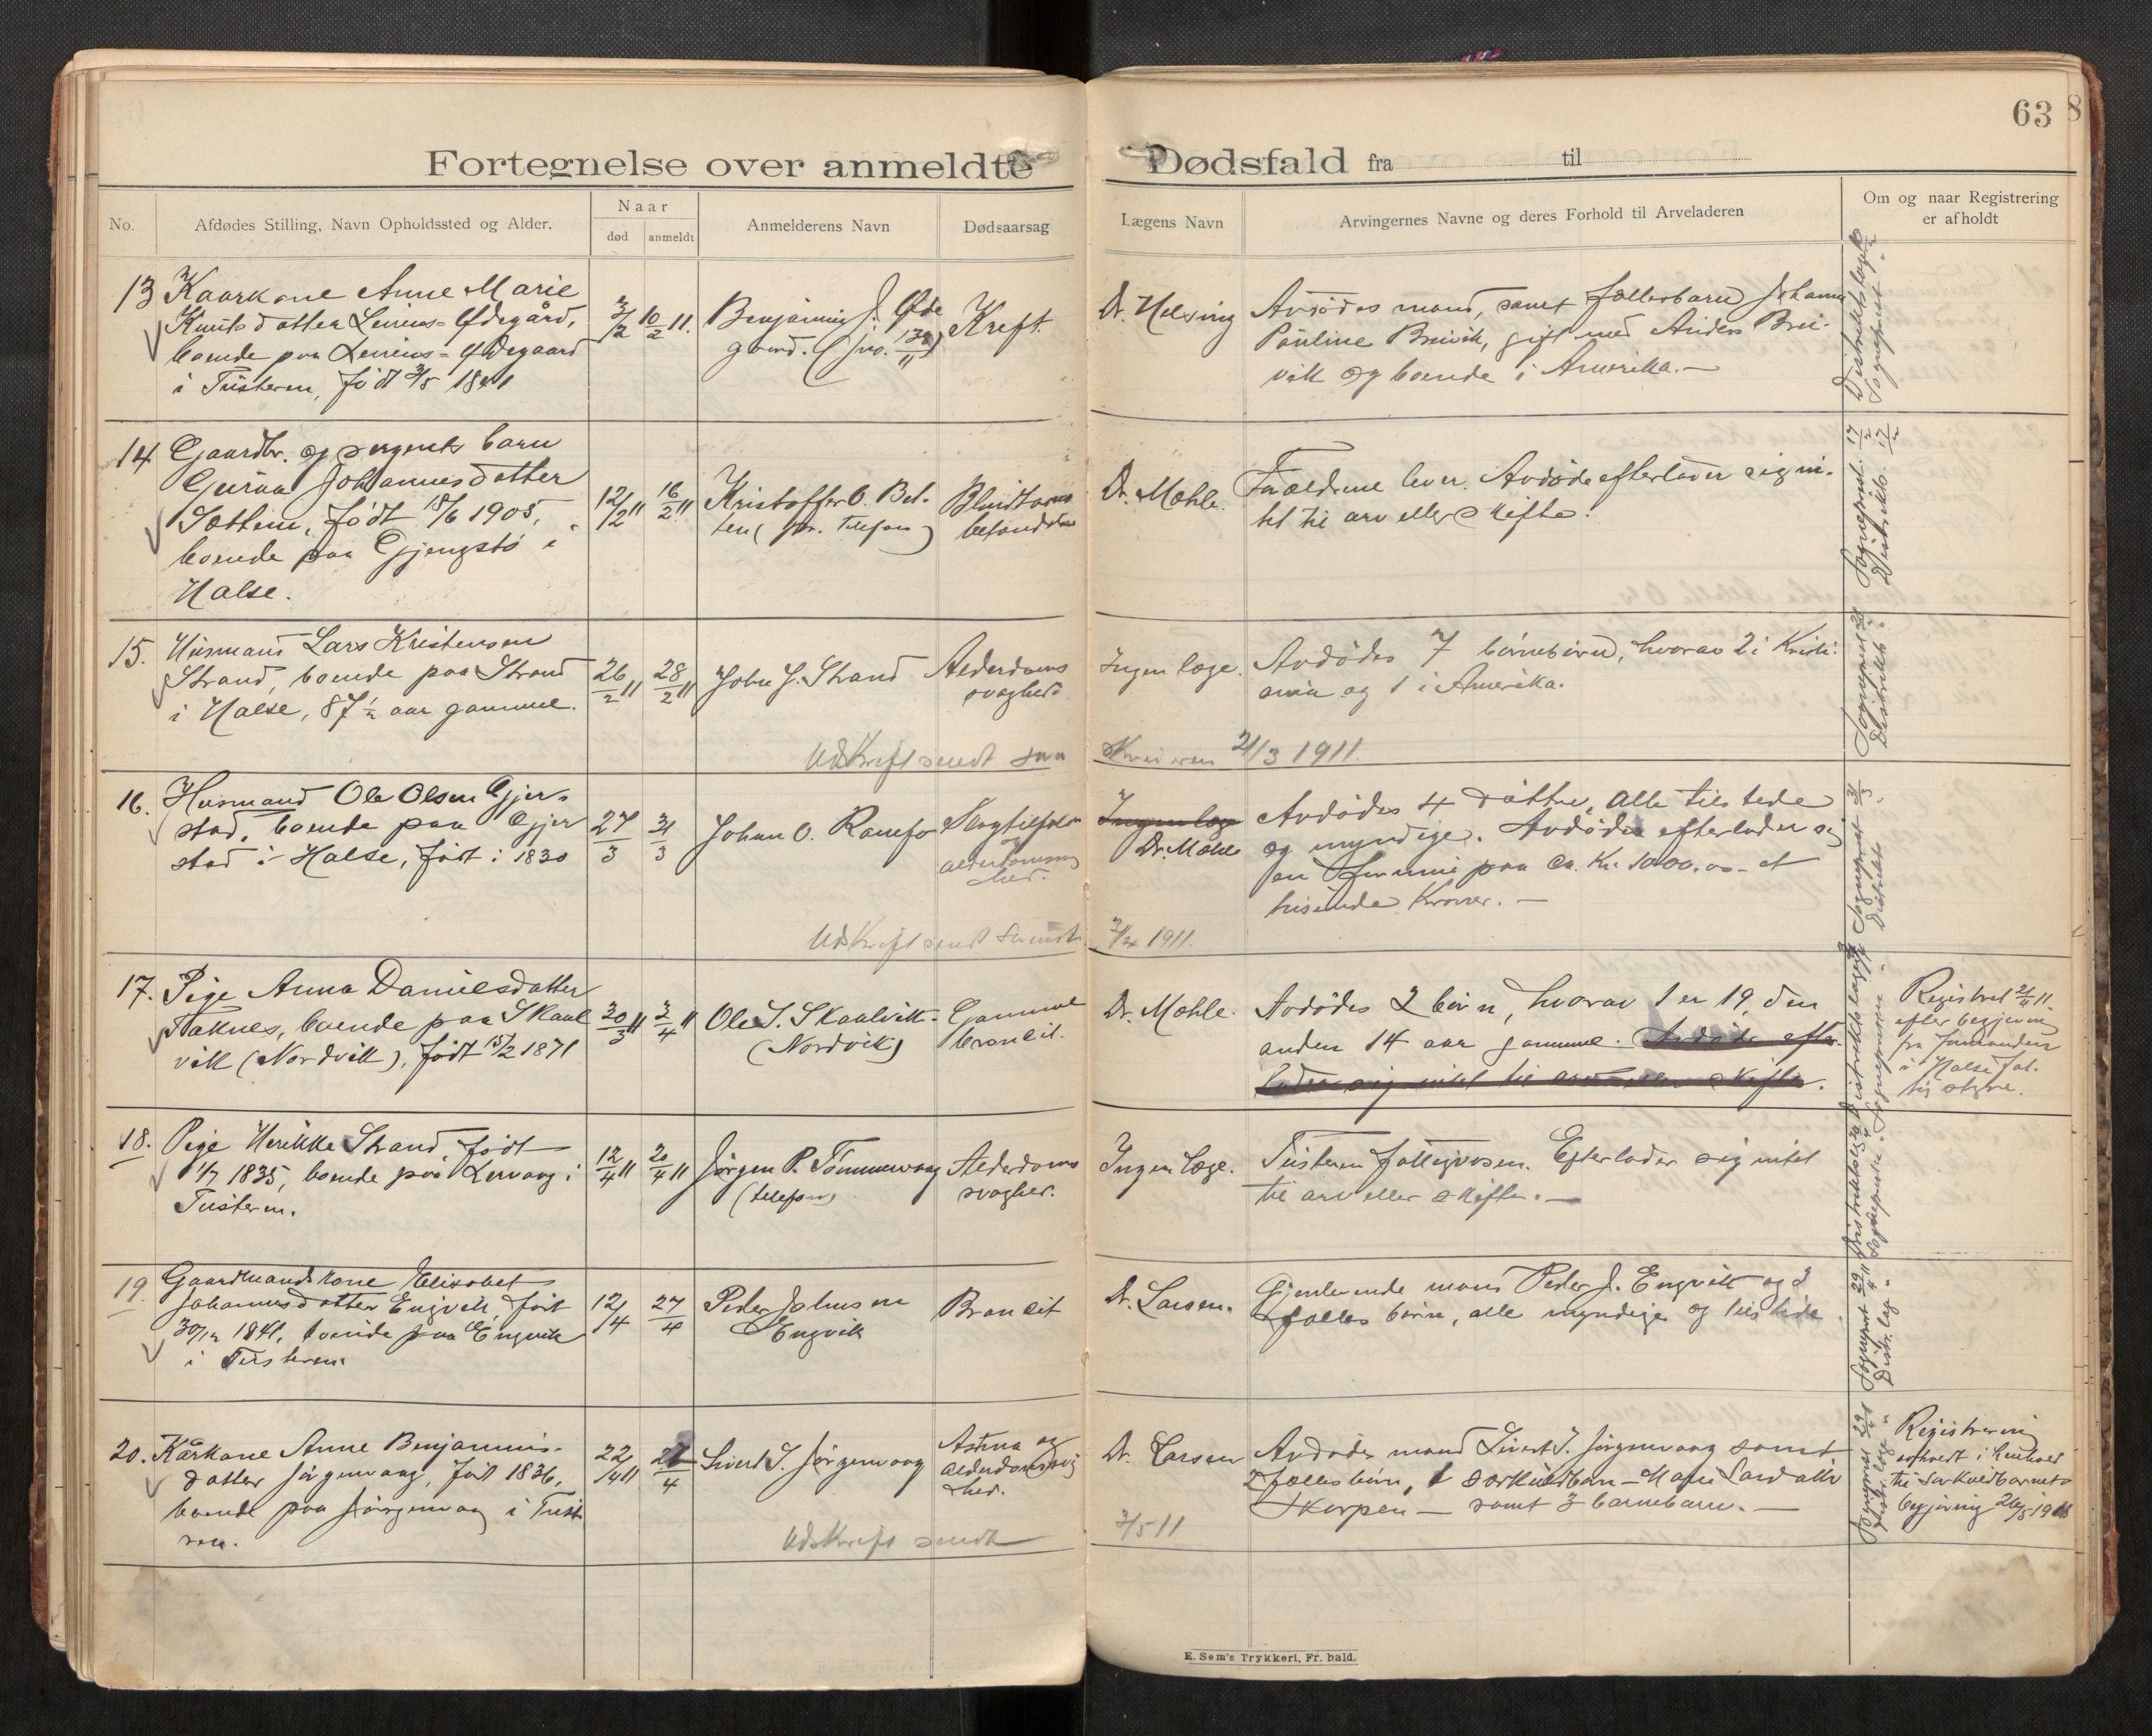 63
Fortegnelse over anmeldte Dødsfald fra til
No.
Afdødes Stilling, Navn Opholdssted og Alder.
Naar
død
anmeldt
Anmelderens Navn
Dødsaarsag
Lægens Navn
Arvingernes Navne og deres Forhold til Arveladeren
Om og naar Registrering
er afholdt
13
Kaarkone Anne Marie
Knutsdatter
boende paa
i Tusteren, født 3/5 1841
10/2 11.
Benjamin J. Øde
gaard.
Kreft.
Dr. Helsing
Avdødes mand, samt fællesbarn Johanne
Pauline Breivik, gift med Anders Brei-
vik og boende i Amerika.—
14
Gaardbr. og sergents barn
Guraa Johannesdatter
Sættem, født 18/6 1905,
boende paa Gjengstø i
Halse.
12/2 11
16/2 11
Kristoffer O. Bel-
ten (pr. telefon)
Blindtarms
betændelse
Dr. Mæhle.
Forældrene lever. Avdøde efterlader sig in-
tet til arv eller skifte.
Sogneprest. 17/2
Distrikts. 17/2
15.
Husmand Lars Kristensen
Strand, boende paa Strand
i Halse, 87 1/2 aar gammel.
26/2 11
28/2 11
John J. Strand
Alderdoms
svaghed
Ingen læge.
Avdødes 7 børnebørn, hvorav 2 i Kristi-
ania og 1 i Amerika.
Udskrift sendt
21/3 1911.
16.
Husmand Ole Olsen Gjer-
stad, boende paa Gjer
stad i Halse, født i 1830
27/3
31/3
Johan O. Ranefo
Slagtilfælde
alderdomssvag
hed.
Ingen læge
Dr. Mæhle
Avdødes 4 døttre, alle tilstede
og myndige. Avdøde efterlader sig
en formue paa ca. Kr. 1000.00 - et
tusinde kroner. —
Udskrift sendt
1911.
17.
Pige Anna Danielsdatter
Taknes, boende paa Skaal
vik (Nordvik), født 15/2 1871
30/3 11
2/4 11
Ole S. Skaalvik.
(Nordvik)
Gammel
bronkit.
Dr. Mæhle.
Avdødes 2 børn, hvorav 1 er 19, den
anden 14 aar gammel. Avdøde efter
lader sig intet til arv eller skifte.
Registrert
efter begjæring
fra formanden
i Halse fat-
tigstyre.
18.
Pige Henrikke Strand, født
1/7 1835, boende paa Lervaag i
Tusteren.
12/4 11
20/4 11
Jørgen P. Tømmervaag
(telefon)
Alderdoms
svaghed.
Ingen læge.
Tusteren fattigvæsen. Efterlader sig intet
til arv eller skifte. —
19
Gaardmandskone Elisabet
Johannesdatter Engvik, født
30/12 1841, boende paa Engvik
i Tusteren.
12/4
27/4
Peder Johnsen
Engvik
Bronkit
Dr. Larsen.
Gjenlevende mand Peder J. Engvik og 3
fælles børn, alle myndige og tilstede
20.
Kårkone Anne Benjamins-
datter Jørgenvaag, født 1836,
boende paa Jørgenvaag i Tust
ren.
22/4 11
Sivert I. Jørgenvaag
Astma og
alderdomssvag
hed.
Dr. Larsen
Avdødes mand Sivert I. Jørgenvaag samt
2 fællesbørn, 1 særkuldbarn — Marie Larsdatter
Skarpen — samt 3 barnebarn. —
Registrering
i henhold
til særkuldbarnets
begjæring
Udskrift sendt
3/5 11
E. Sem's Trykkeri, Fr. hald.